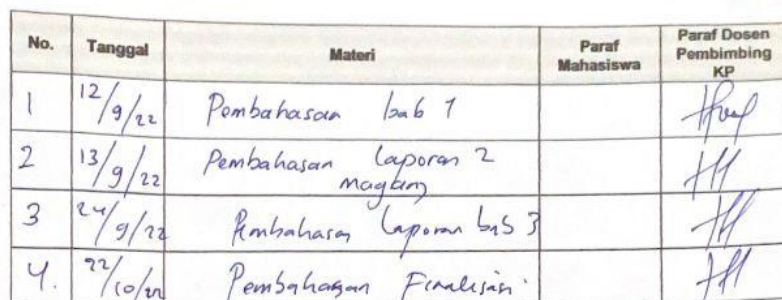 No. Tanggal Materi Paraf Mahasiswa Paraf Dosen Pembimbing KP
1 12/9/22 Pembahasan bab 1
2 13/9/22 Pembahasan Laporan 2 magang
3 24/9/22 Pembahasan Laporan bab 3
4. 22/10/22 Pembahasan Finalisasi